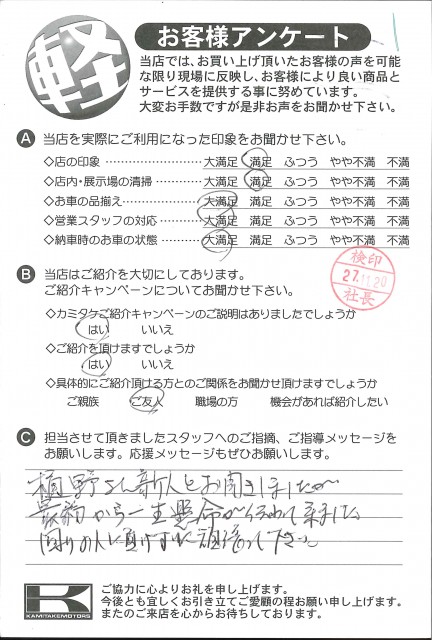 軽
お客様アンケート
当店では、お買い上げ頂いたお客様の声を可能
な限り現場に反映し、お客様により良い商品と
サービスを提供する事に努めています。
大変お手数ですが是非お声をお聞かせ下さい。
A 当店を実際にご利用になった印象をお聞かせ下さい。
◇店の印象 ………………… 大満足 満足 ふつう やや不満 不満
◇店内・展示場の清掃 ………… 大満足 満足 ふつう やや不満 不満
◇お車の品揃え ……………… 大満足 満足 ふつう やや不満 不満
◇営業スタッフの対応 ………… 大満足 満足 ふつう やや不満 不満
◇納車時のお車の状態 ………… 大満足 満足 ふつう やや不満 不満
検印
27.11.20
社長
B 当店はご紹介を大切にしております。
ご紹介キャンペーンについてお聞かせ下さい。
◇カミタケご紹介キャンペーンのご説明はありましたでしょうか
はい いいえ
◇ご紹介を頂けますでしょうか
はい いいえ
◇具体的にご紹介頂ける方とのご関係をお聞かせ頂けますでしょうか
ご親族 ご友人 職場の方 機会があれば紹介したい
C 担当させて頂きましたスタッフへのご指摘、ご指導メッセージを
お願いします。応援メッセージもぜひお願いします。
植野さん新人とお聞きしましたが
最初から一生懸命が伝わって来ました
周りの人に負けずに頑張って下さい。
K
KAMITAKEMOTORS
ご協力に心よりお礼を申し上げます。
今後とも宜しくお引き立てご愛顧の程お願い申し上げます。
またのご来店を心からお待ちしております。